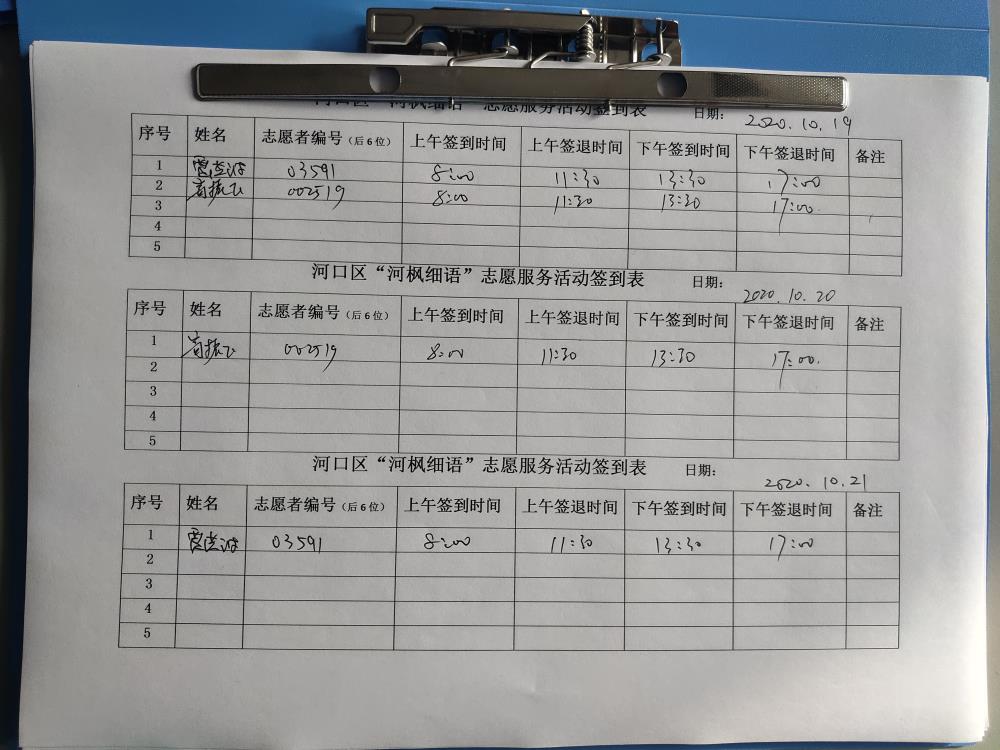 河口区“河枫细语”志愿服务活动签到表 日期： 2020.10.19
序号 姓名 志愿者编号（后6位） 上午签到时间 上午签退时间 下午签到时间 下午签退时间 备注
1 03591 8:00 11:30 13:30 17:00
2 002519 8:00 11:30 13:30 17:00.
3
4
5
河口区“河枫细语”志愿服务活动签到表 日期： 2020.10.20
序号 姓名 志愿者编号（后6位） 上午签到时间 上午签退时间 下午签到时间 下午签退时间 备注
1 002519 8:00 11:30 13:30 17:00.
2
3
4
5
河口区“河枫细语”志愿服务活动签到表 日期： 2020.10.21
序号 姓名 志愿者编号（后6位） 上午签到时间 上午签退时间 下午签到时间 下午签退时间 备注
1 03591 8:00 11:30 13:30 17:00
2
3
4
5